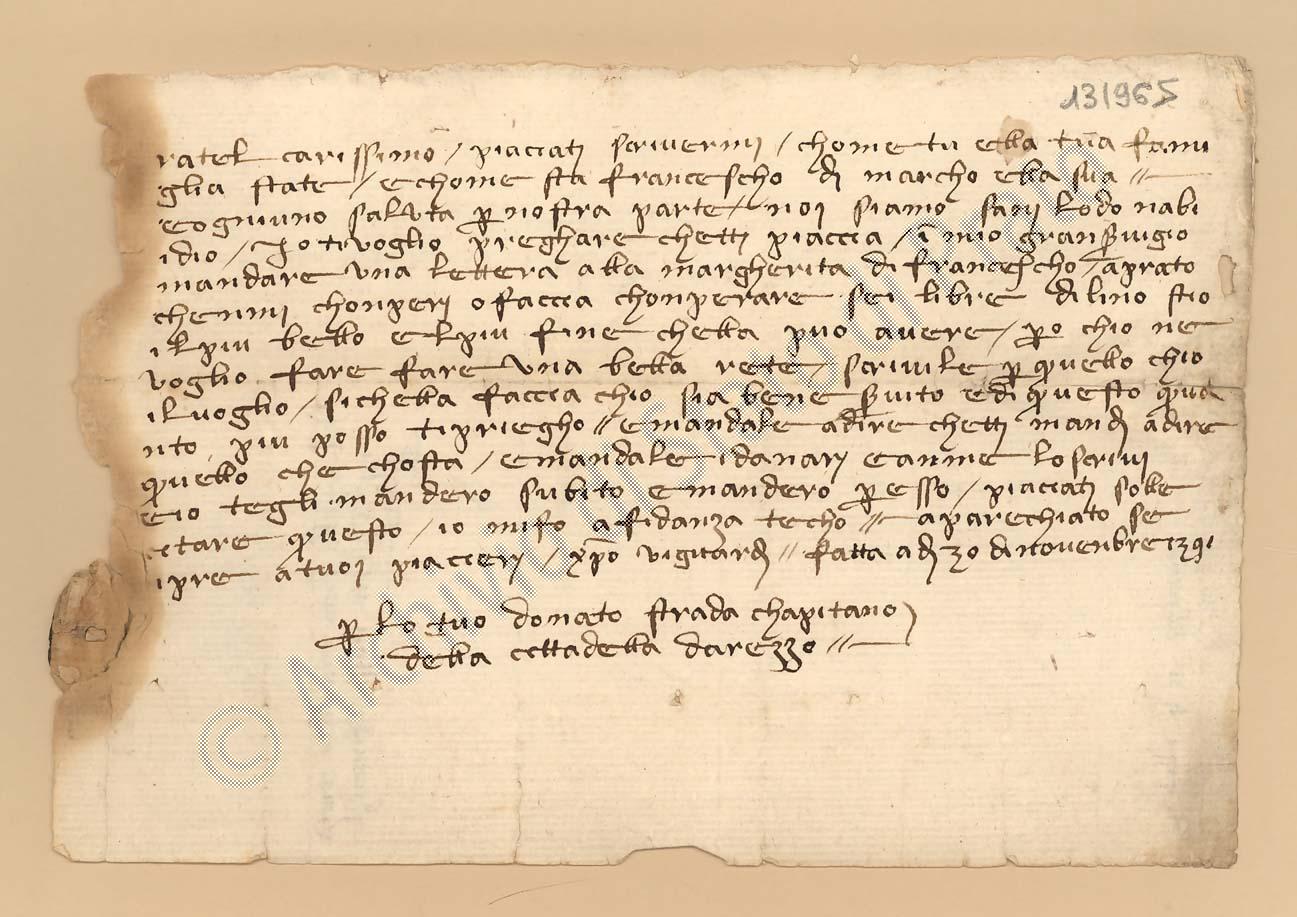 131965
ratel carissimo / piacciati scrivermi / chome tu ella tua fami
glia state / e chome sta francescho di marcho ella sua //
e ogniuno saluta p nostra parte / noi siamo sani lodo nabi
idio / Io ti voglio preghare chetti piaccia / i mio gran svigio
mandare una lettera alla margherita di francescho / a prato
chemmi chonperi o faccia chonperare sei libre di lino stio
il piu bello el piu fine chella puo avere / po chio ne
voglio fare fare una bella rete / scrivile p quello chio
il voglio / sichella faccia chio sia bene svito e di questo qua
nto piu posso ti priegho // e mandale a dire chetti mandi a dire
quello che chosta / e mandale i danari e anme lo scrivi
e io tegli mandero subito e mandero p esso / piacciati solle
citare questo / io mi fo a fidanza techo // aparechiato se
npre a tuoi piacieri / xpo vi ghuardi // fatta a di 30 di novenbre 1391
p lo tuo donato strada chapitano
della cittadella darezzo //
© Archivio di Stato di Prato